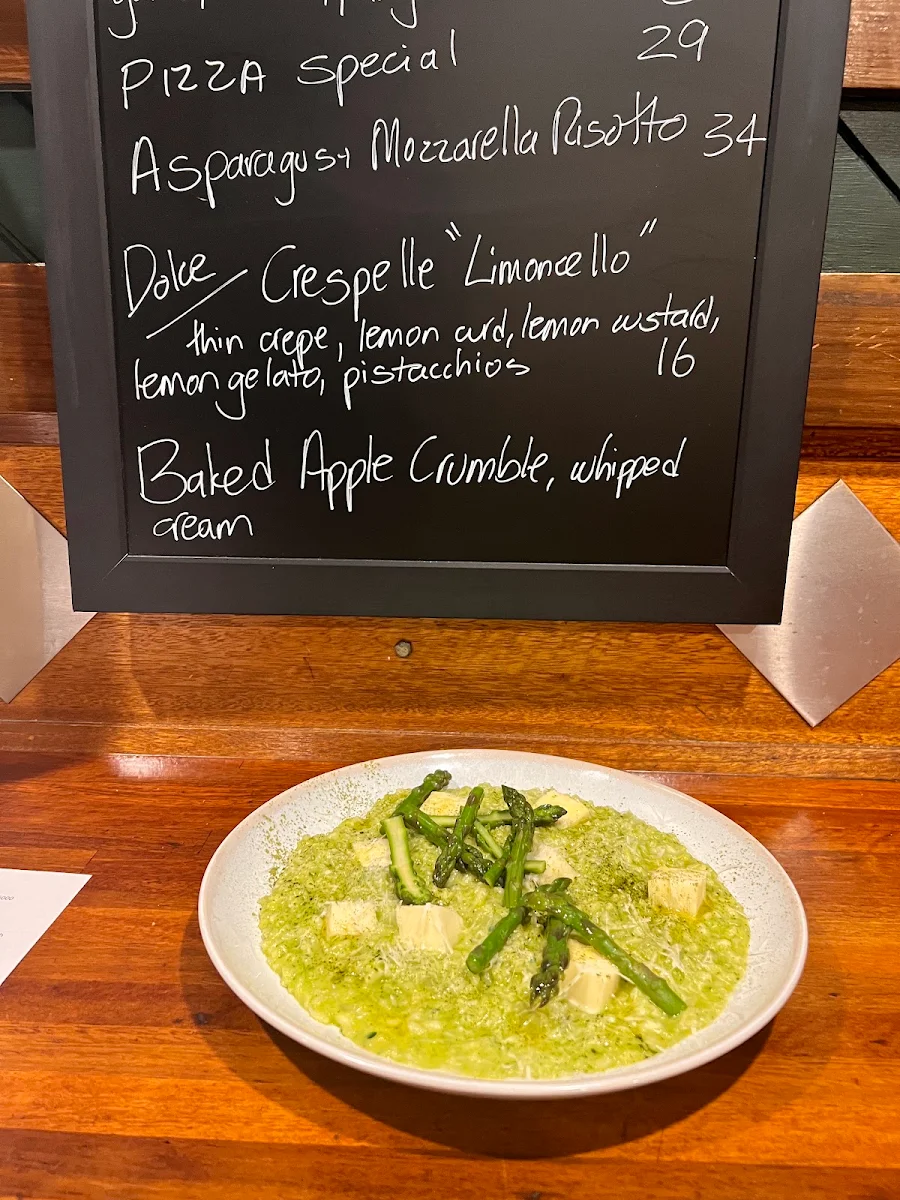 29
PIZZA special
Asparagus + Mozzarella Risotto 34
Dolce / Crespelle "Limoncello"
thin crepe, lemon curd, lemon custard,
lemon gelato, pistacchios 16
Baked Apple Crumble, whipped
cream